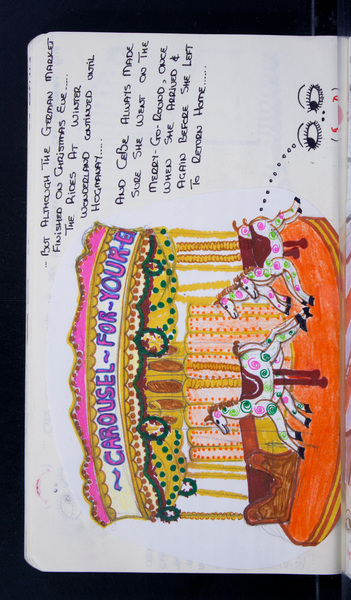 ... BUT ALTHOUGH THE GERMAN MARKET
FINISHED ON CHRISTMAS EVE.....
THE RIDES AT WINTER
WONDERLAND CONTINUED UNTIL
HOGMANAY.....
AND CEBE ALWAYS MADE
SURE SHE WENT ON THE
MERRY-GO-ROUND, ONCE
WHEN SHE ARRIVED &
AGAIN BEFORE SHE LEFT
TO RETURN HOME......
~CAROUSEL~FOR~YOUR~E